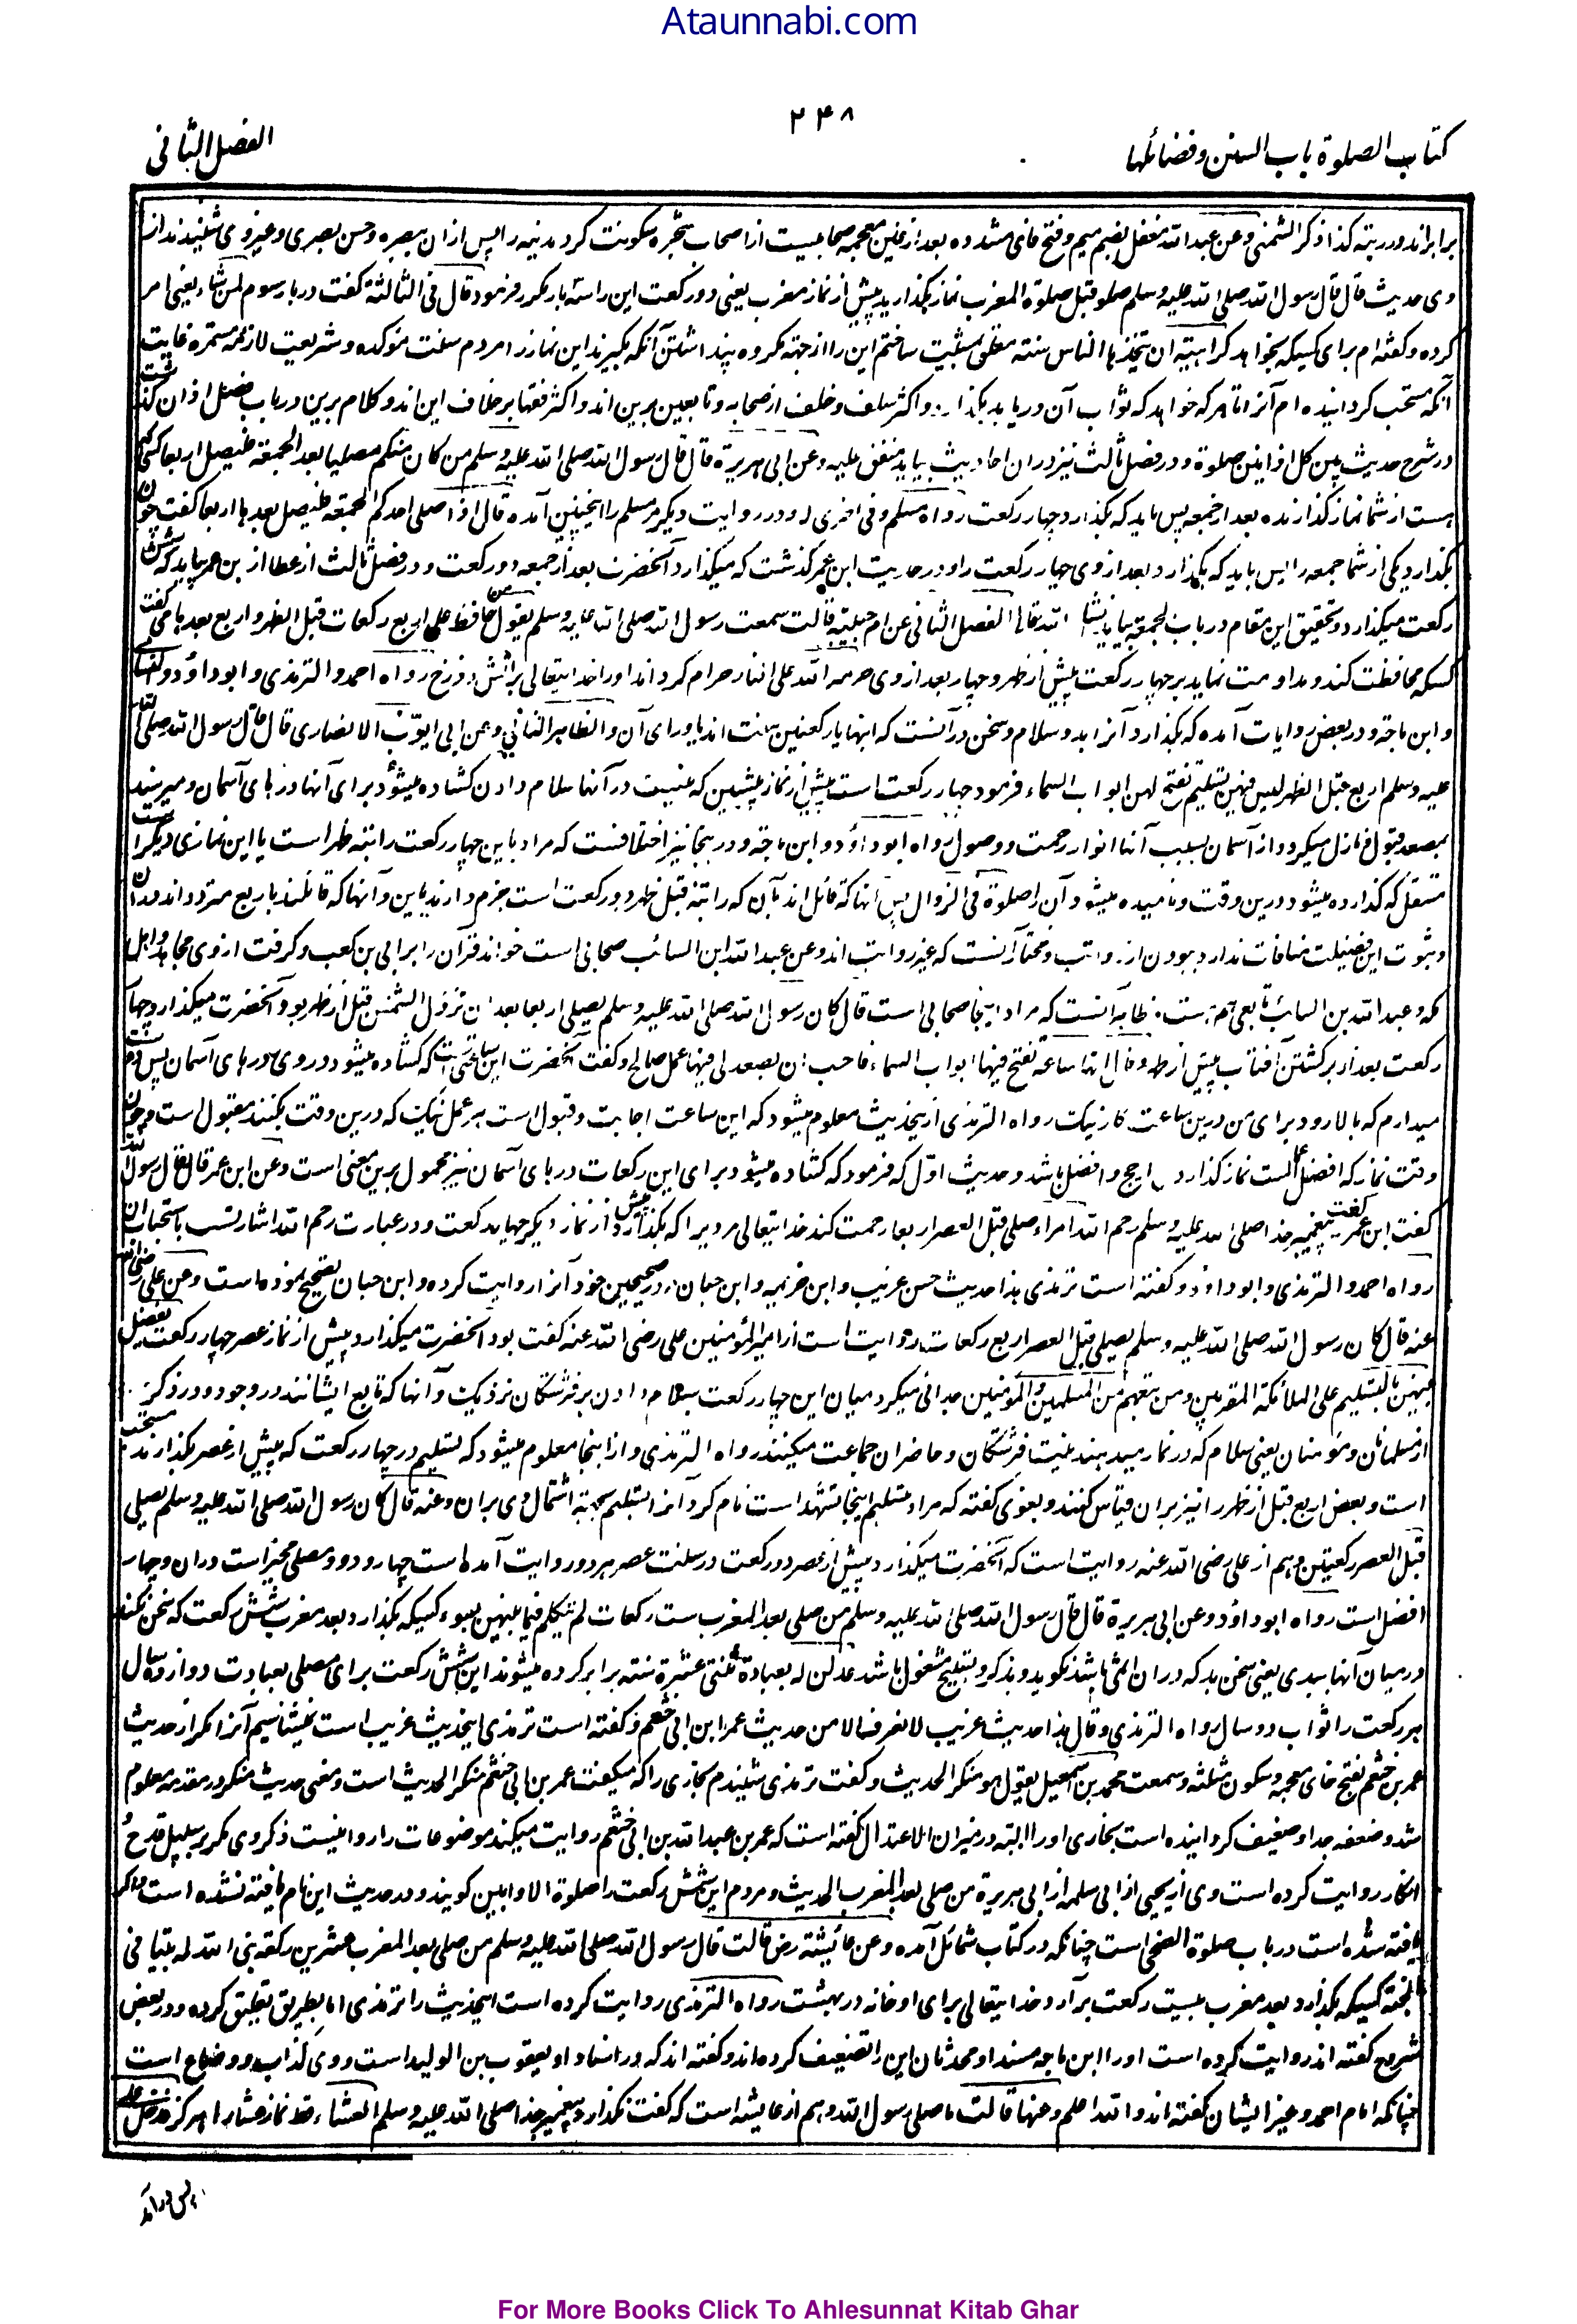 Ataunnabi.com
۲۴۸
کتاب الصلوة باب السنن وفضائلها
الفصل الثانی
برابراند ورربته کذا ذکر الشمنی وعن عبدالله مغفل بضم میم وفتح فای مشدده بعد از غین معجمه صحابیست از اصحاب شجره سکونت کرد مدینه را پس ازان ببصره وحسن بصری وغیروی شنیدند از
وی حدیث قال قال رسول الله صلی الله علیه وسلم صلو قبل صلوة المغرب نماز بگذارید پیش از نماز مغرب یعنی دو رکعت این را سه بار مکرر فرمود قال فی الثالثة گفت در بار سوم لمن شاء یعنی امر
کرده وگفته ام برای کسیکه بخواهد کراهیته ان یتخذها الناس سنته مطلق بمشیت ساختم این را از جهته مکروه پنداشتن آنکه بگیرند این نماز را مردم سنت مؤکده وشریعت لازمه مستمره غایت
آنکه مستحب گردانیده ام آنرا تا هر که خواهد که ثواب آن دریابد بگذارد واکثر سلف وخلف از صحابه وتابعین برین اند واکثر فقها بر خلاف این اند وکلام برین در باب فضل اذان گذشت
در شرح حدیث بین کل اذانین صلوة ودر فصل ثالث نیز دران احادیث بیاید متفق علیه وعن ابی هریرة قال قال رسول الله صلی الله علیه وسلم من کان منکم مصلیا بعد الجمعة فلیصل اربعا کسی که
هست از شما نماز گذارنده بعد از جمعه پس باید که بگذارد چهار رکعت رواه مسلم وفی اخری له ودر روایت دیگر مر مسلم را اینچنین آمده قال اذا صلی احدکم الجمعة فلیصل بعدها اربعا گفت چون
بگذارد یکی از شما جمعه را پس باید که بگذارد بعد از وی چهار رکعت را ودر حدیث ابن عمر گذشت که میگذارد آنحضرت بعد از جمعه دو رکعت ودر فصل ثالث از عطا از بن عمر بیاید که شش
رکعت میگذارد وتحقیق این مقام در باب الجمعة بیاید انشاء الله تعالی الفصل الثانی عن ام حبیبة قالت سمعت رسول الله صلی الله علیه وسلم یقول من حافظ علی اربع رکعات قبل الظهر واربع بعدها می گفت
کسیکه محافظت کند ومداومت نماید بر چهار رکعت پیش از ظهر وچهار بعد از وی حرمه الله علی النار حرام گرداند او را خدایتعالی بر آتش دوزخ رواه احمد والترمذی وابوداؤد والنسائی
وابن ماجة ودر بعض روایات آمده که بگذارد آنرا بدو سلام وسخن درآنست که اینها یا رکعتین سنت اند یا ورای آن والظاهر الثانی وعن ابی ایوب الانصاری قال قال رسول الله صلی الله
علیه وسلم اربع قبل الظهر لیس فیهن تسلیم تفتح لهن ابواب السماء فرمود چهار رکعت است پیش از نماز پیشین که نیست در آنها سلام دادن کشاده میشود برای آنها درهای آسمان ومیرسند
بمصعد قبول ونازل میگردد از آسمان بسبب آنها انوار رحمت ووصول رواه ابوداؤد وابن ماجة ودرینجا نیز اختلافست که مراد باین چهار رکعت راتبه ظهر است یا این نمازی دیگر است
مستقل که گذارده میشود درین وقت ونامیده میشود آن را صلوة فی الزوال پس آنها که قائل اند بآن که راتبه قبل ظهر دو رکعت است جزم دارند باین وآنها که قائلند باربع متردد اند دران
وثبوت این فضیلت منافات ندارد ببودن از رواتب ومختار آنست که غیر رواتب اند وعن عبدالله ابن السائب صحابی است خواند قرآن را بر ابی بن کعب وگرفت از وی مجاهد واهل
مکه وعبدالله بن السائب تابعی هم هست وظاهر آنست که مراد اینجا صحابی است قال کان رسول الله صلی الله علیه وسلم یصلی اربعا بعد ان تزول الشمس قبل الظهر بود آنحضرت میگذارد چهار
رکعت بعد از برگشتن آفتاب پیش از ظهر وقال انها ساعة تفتح فیها ابواب السماء فاحب ان یصعد لی فیها عمل صالح وگفت آنحضرت این ساعتی است که کشاده میشود دروی درهای آسمان پس دوست
میدارم که بالا رود برای من درین ساعت کار نیک رواه الترمذی ازینحدیث معلوم میشود که این ساعت اجابت وقبول است هر عمل نیک که درین وقت بکنند مقبول است وچون
وقت نماز که افضل اعمالست نماز گذاردن ارجح وافضل باشد وحدیث اول که فرمود که کشاده میشود برای این رکعات درهای آسمان نیز محمول برین معنی است وعن ابن عمر قال قال رسول الله
گفت ابن عمر گفت پیغمبر خدا صلی الله علیه وسلم رحم الله امراء صلی قبل العصر اربعا رحمت کند خدایتعالی مردیرا که بگذارد پیش از نماز دیگر چهار رکعت ودر عبارت رحم الله اشارتست باستحباب آن
رواه احمد والترمذی وابوداؤد وگفته است ترمذی هذا حدیث حسن غریب وابن خزیمه وابن حبان در صحیحین خود آنرا روایت کرده وابن حبان تصحیح نموده است وعن علی رضی الله
عنه قال کان رسول الله صلی الله علیه وسلم یصلی قبل العصر اربع رکعات روایت است از امیرالمؤمنین علی رضی الله عنه گفت بود آنحضرت میگذارد پیش از نماز عصر چهار رکعت یفصل
بینهن بالتسلیم علی الملائکة المقربین ومن تبعهم من المسلمین والمؤمنین جدائی میکرد میان این چهار رکعت بسلام دادن بر فرشتگان نزدیک وآنها که تابع ایشانند در وجود ودر ذکر
از مسلمانان ومؤمنان یعنی سلام که در نماز میدهند بنیت فرشتگان وحاضران جماعت میکنند رواه الترمذی وازاینجا معلوم میشود که تسلیم در چهار رکعت که پیش از عصر بگذارند مستحب
است وبعض اربع قبل از ظهر را نیز بران قیاس کنند وبغوی گفته که مراد بتسلیم اینجا تشهد است نام کرد آنرا تسلیم بجهته اشتمال وی بران وعنه قال کان رسول الله صلی الله علیه وسلم یصلی
قبل العصر رکعتین وهم از علی رضی الله عنه روایت است که آنحضرت میگذارد پیش از عصر دو رکعت در سنت عصر هر دو روایت آمده است چهار ودو ومصلی مخیر است دران وچهار
افضل است رواه ابوداؤد وعن ابی هریرة قال قال رسول الله صلی الله علیه وسلم من صلی بعد المغرب ست رکعات لم یتکلم فیما بینهن بسوء کسیکه بگذارد بعد مغرب شش رکعت که سخن نکند
درمیان آنها ببدی یعنی سخن بد که دران اثم باشد نگوید وبذکر وتسبیح مشغول باشد عدلن له بعبادة ثنتی عشرة سنته برابر کرده میشوند این شش رکعت برای مصلی بعبادت دوازده سال
هر رکعت را ثواب دو سال رواه الترمذی وقال هذا حدیث غریب لا نعرفه الا من حدیث عمر ابن ابی خثعم وگفته است ترمذی اینحدیث غریب است نمیشناسیم آنرا مگر از حدیث
عمر بن خثعم بفتح خای معجمه وسکون مثلثه وسمعت محمد بن اسمعیل یقول هو منکر الحدیث وگفت ترمذی شنیدم بخاری را که میگفت عمر بن ابی خثعم منکر الحدیث است ومعنی حدیث منکر در مقدمه معلوم
شد وضعفه جدا وضعیف گردانیده است بخاری او را البته در میزان الاعتدال گفته است که عمر بن عبدالله بن ابی خثعم روایت میکند موضوعات را روا نیست ذکر وی مگر بر سبیل قدح
انکار روایت کرده است وی از یحیی از ابی سلمه از ابی هریرة من صلی بعد المغرب الحدیث ومردم این شش رکعت را صلوة الاوابین گویند ودر حدیث این نام یافته نشده است
یافته شده است در باب صلوة الضحی است چنانکه در کتاب شمائل آمده وعن عائیشة رض قالت قال رسول الله صلی الله علیه وسلم من صلی بعد المغرب عشرین رکعة بنی الله له بیتا فی
الجنة کسیکه بگذارد بعد مغرب بیست رکعت برآرد خدایتعالی برای او خانه در بهشت رواه الترمذی روایت کرده است اینحدیث را ترمذی اما بطریق تعلیق کرده ودر بعض
شروح گفته اند روایت کرده است او را ابن ماجه مسند او محدثان این را تضعیف کرده اند وگفته اند که در اسناد او یعقوب بن الولید است ووی کذاب ووضاع است
چنانکه امام احمد وغیر ایشان گفته اند والله اعلم وعنها قالت ما صلی رسول الله وهم از عایشه است که گفت نگذارد پیغمبر خدا صلی الله علیه وسلم العشاء قط نماز عشا را هرگز فدخل علی
پس درآمد
For More Books Click To Ahlesunnat Kitab Ghar